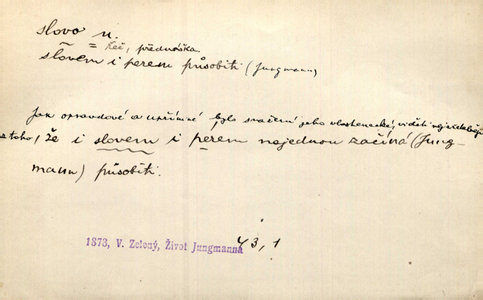 slovo n.
= řeč, přednáška.
slovem i perem působiti (Jungmann)
Jak opravdové a upřímné bylo snažení jeho vlastenecké, viděti nejzřetelněji
z toho, že i slovem i perem najednou začíná (Jung-
mann) působiti.
1873, V. Zelený, Život Jungmanna 43,1